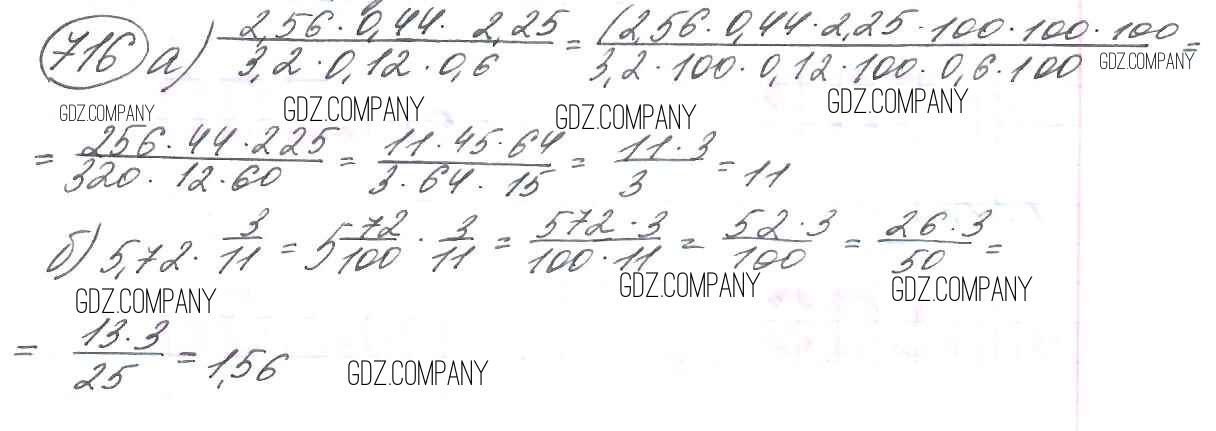 716 а) 2,56 · 0,44 · 2,25 / 3,2 · 0,12 · 0,6 = (2,56 · 0,44 · 2,25 · 100 · 100 · 100 / 3,2 · 100 · 0,12 · 100 · 0,6 · 100 =
GDZ.COMPANY GDZ.COMPANY GDZ.COMPANY GDZ.COMPANY GDZ.COMPANY
= 256 · 44 · 225 / 320 · 12 · 60 = 11 · 45 · 64 / 3 · 64 · 15 = 11 · 3 / 3 = 11
б) 5,72 · 3/11 = 5 72/100 · 3/11 = 572 · 3 / 100 · 11 = 52 · 3 / 100 = 26 · 3 / 50 =
GDZ.COMPANY GDZ.COMPANY GDZ.COMPANY
= 13 · 3 / 25 = 1,56 GDZ.COMPANY